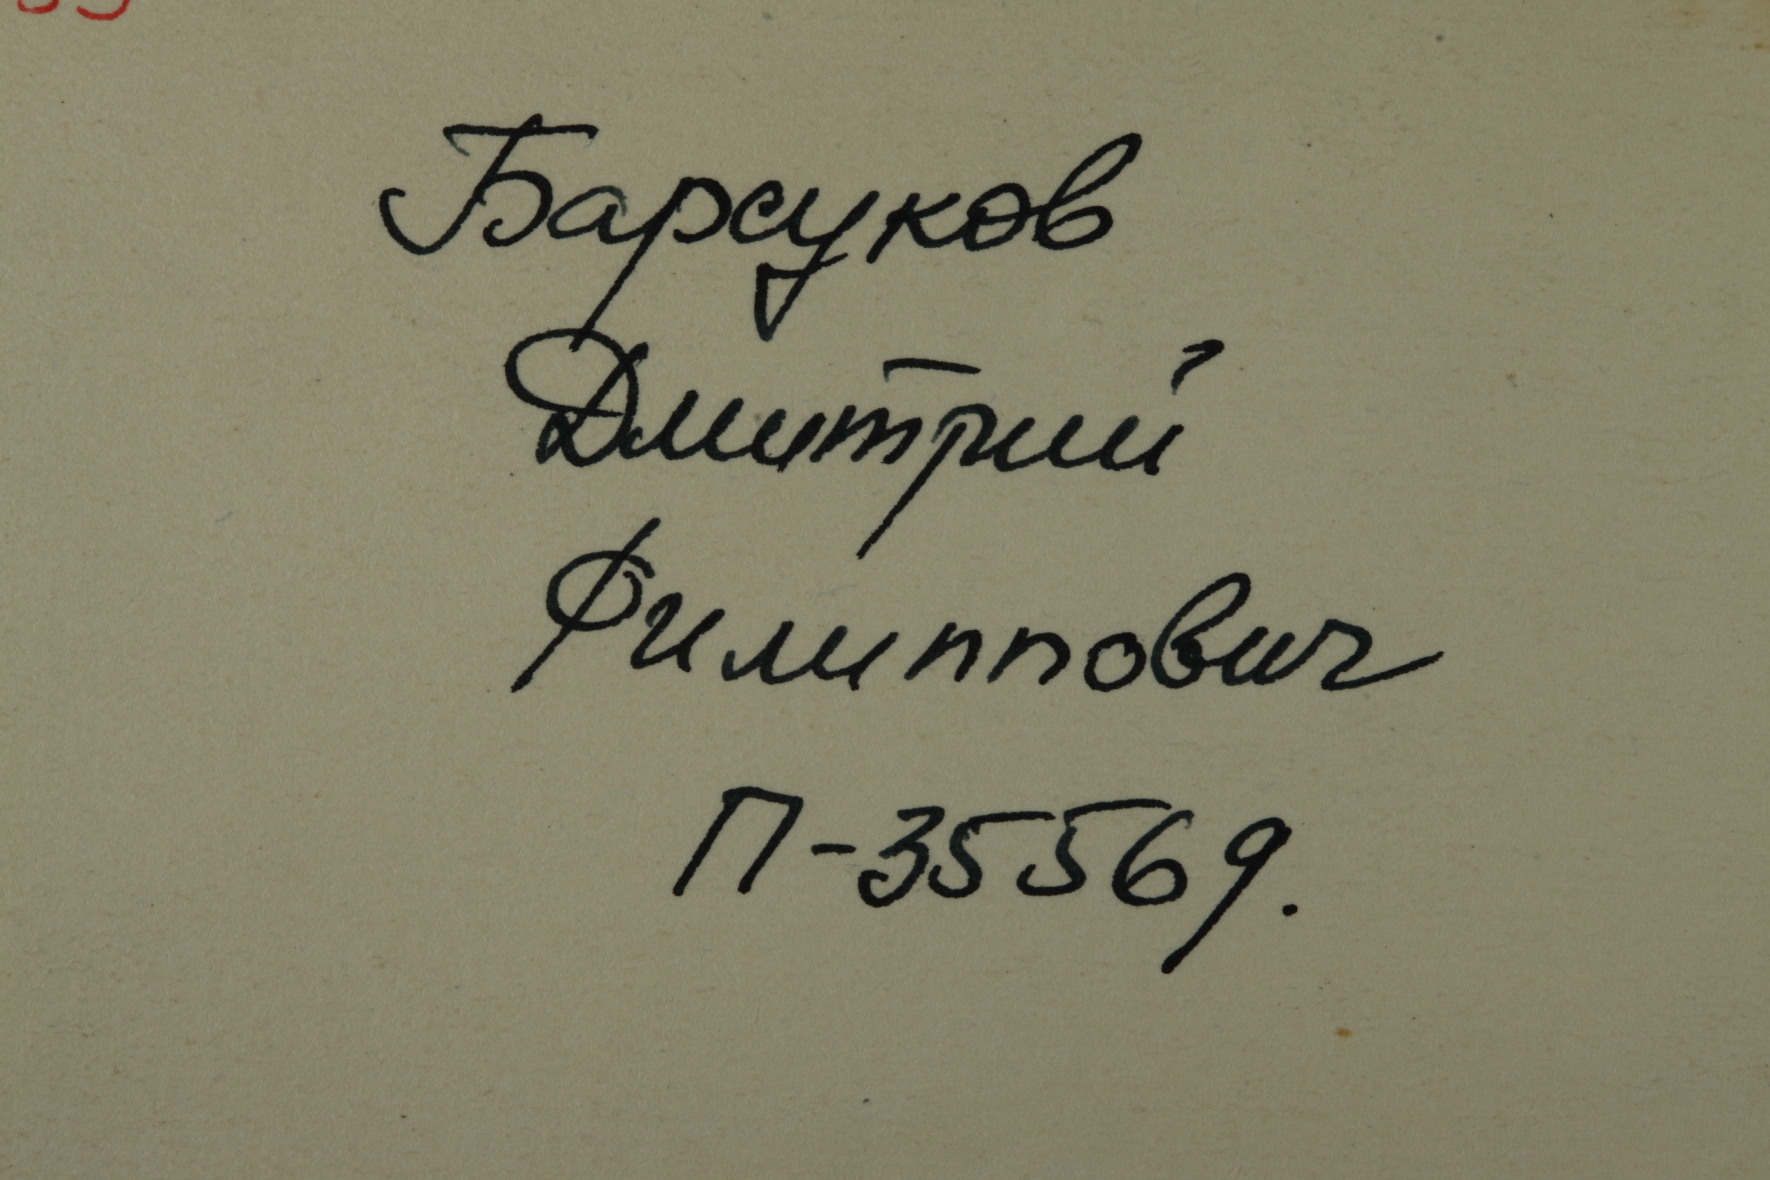 Барсуков
Дмитрий
Филиппович
П-35569.